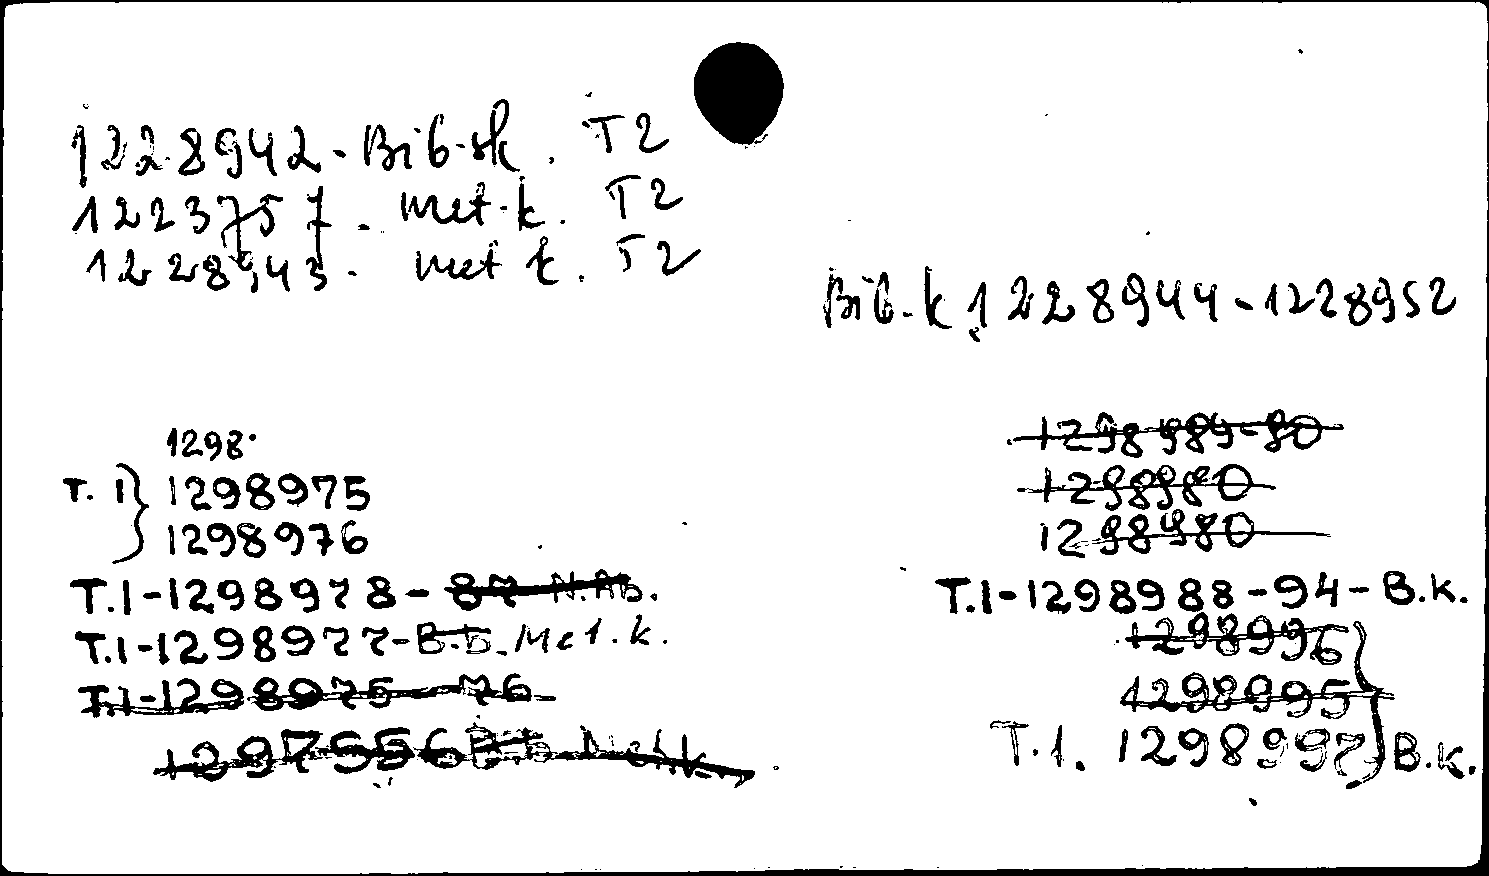 1228942 - Bib-sk. T2
1223757 - Met-k. T2
1228943 - Met k. T2
Bib.k 1228944 - 1228952
1298
T. 1 } 1298975
1298976
T.1-1298978- 87 N.Ab.
T.1-1298977-B.b. Met.k.
T.1-1298975-76
1297556 B.b. Met.k.
1298989-90
1298980
1298980
T.1-1298988-94-B.k.
1298996
1298995
T.1. 1298997 } B.k.